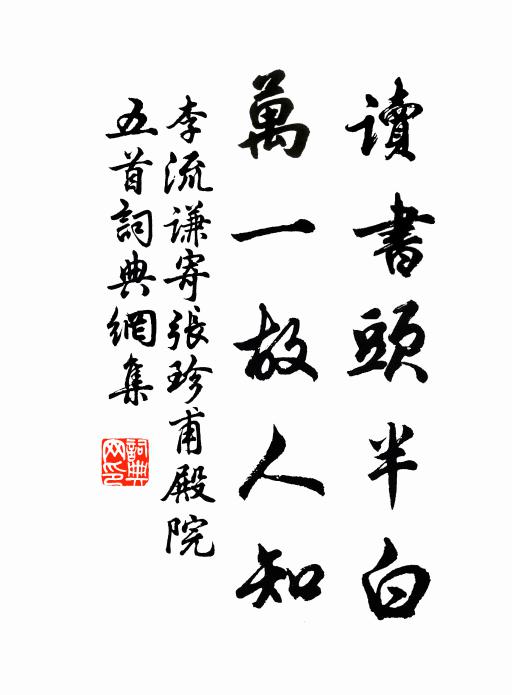 讀書頭半白
萬一故人知
李流謙寄張珍甫殿院
五首詞典網集
詞典網印